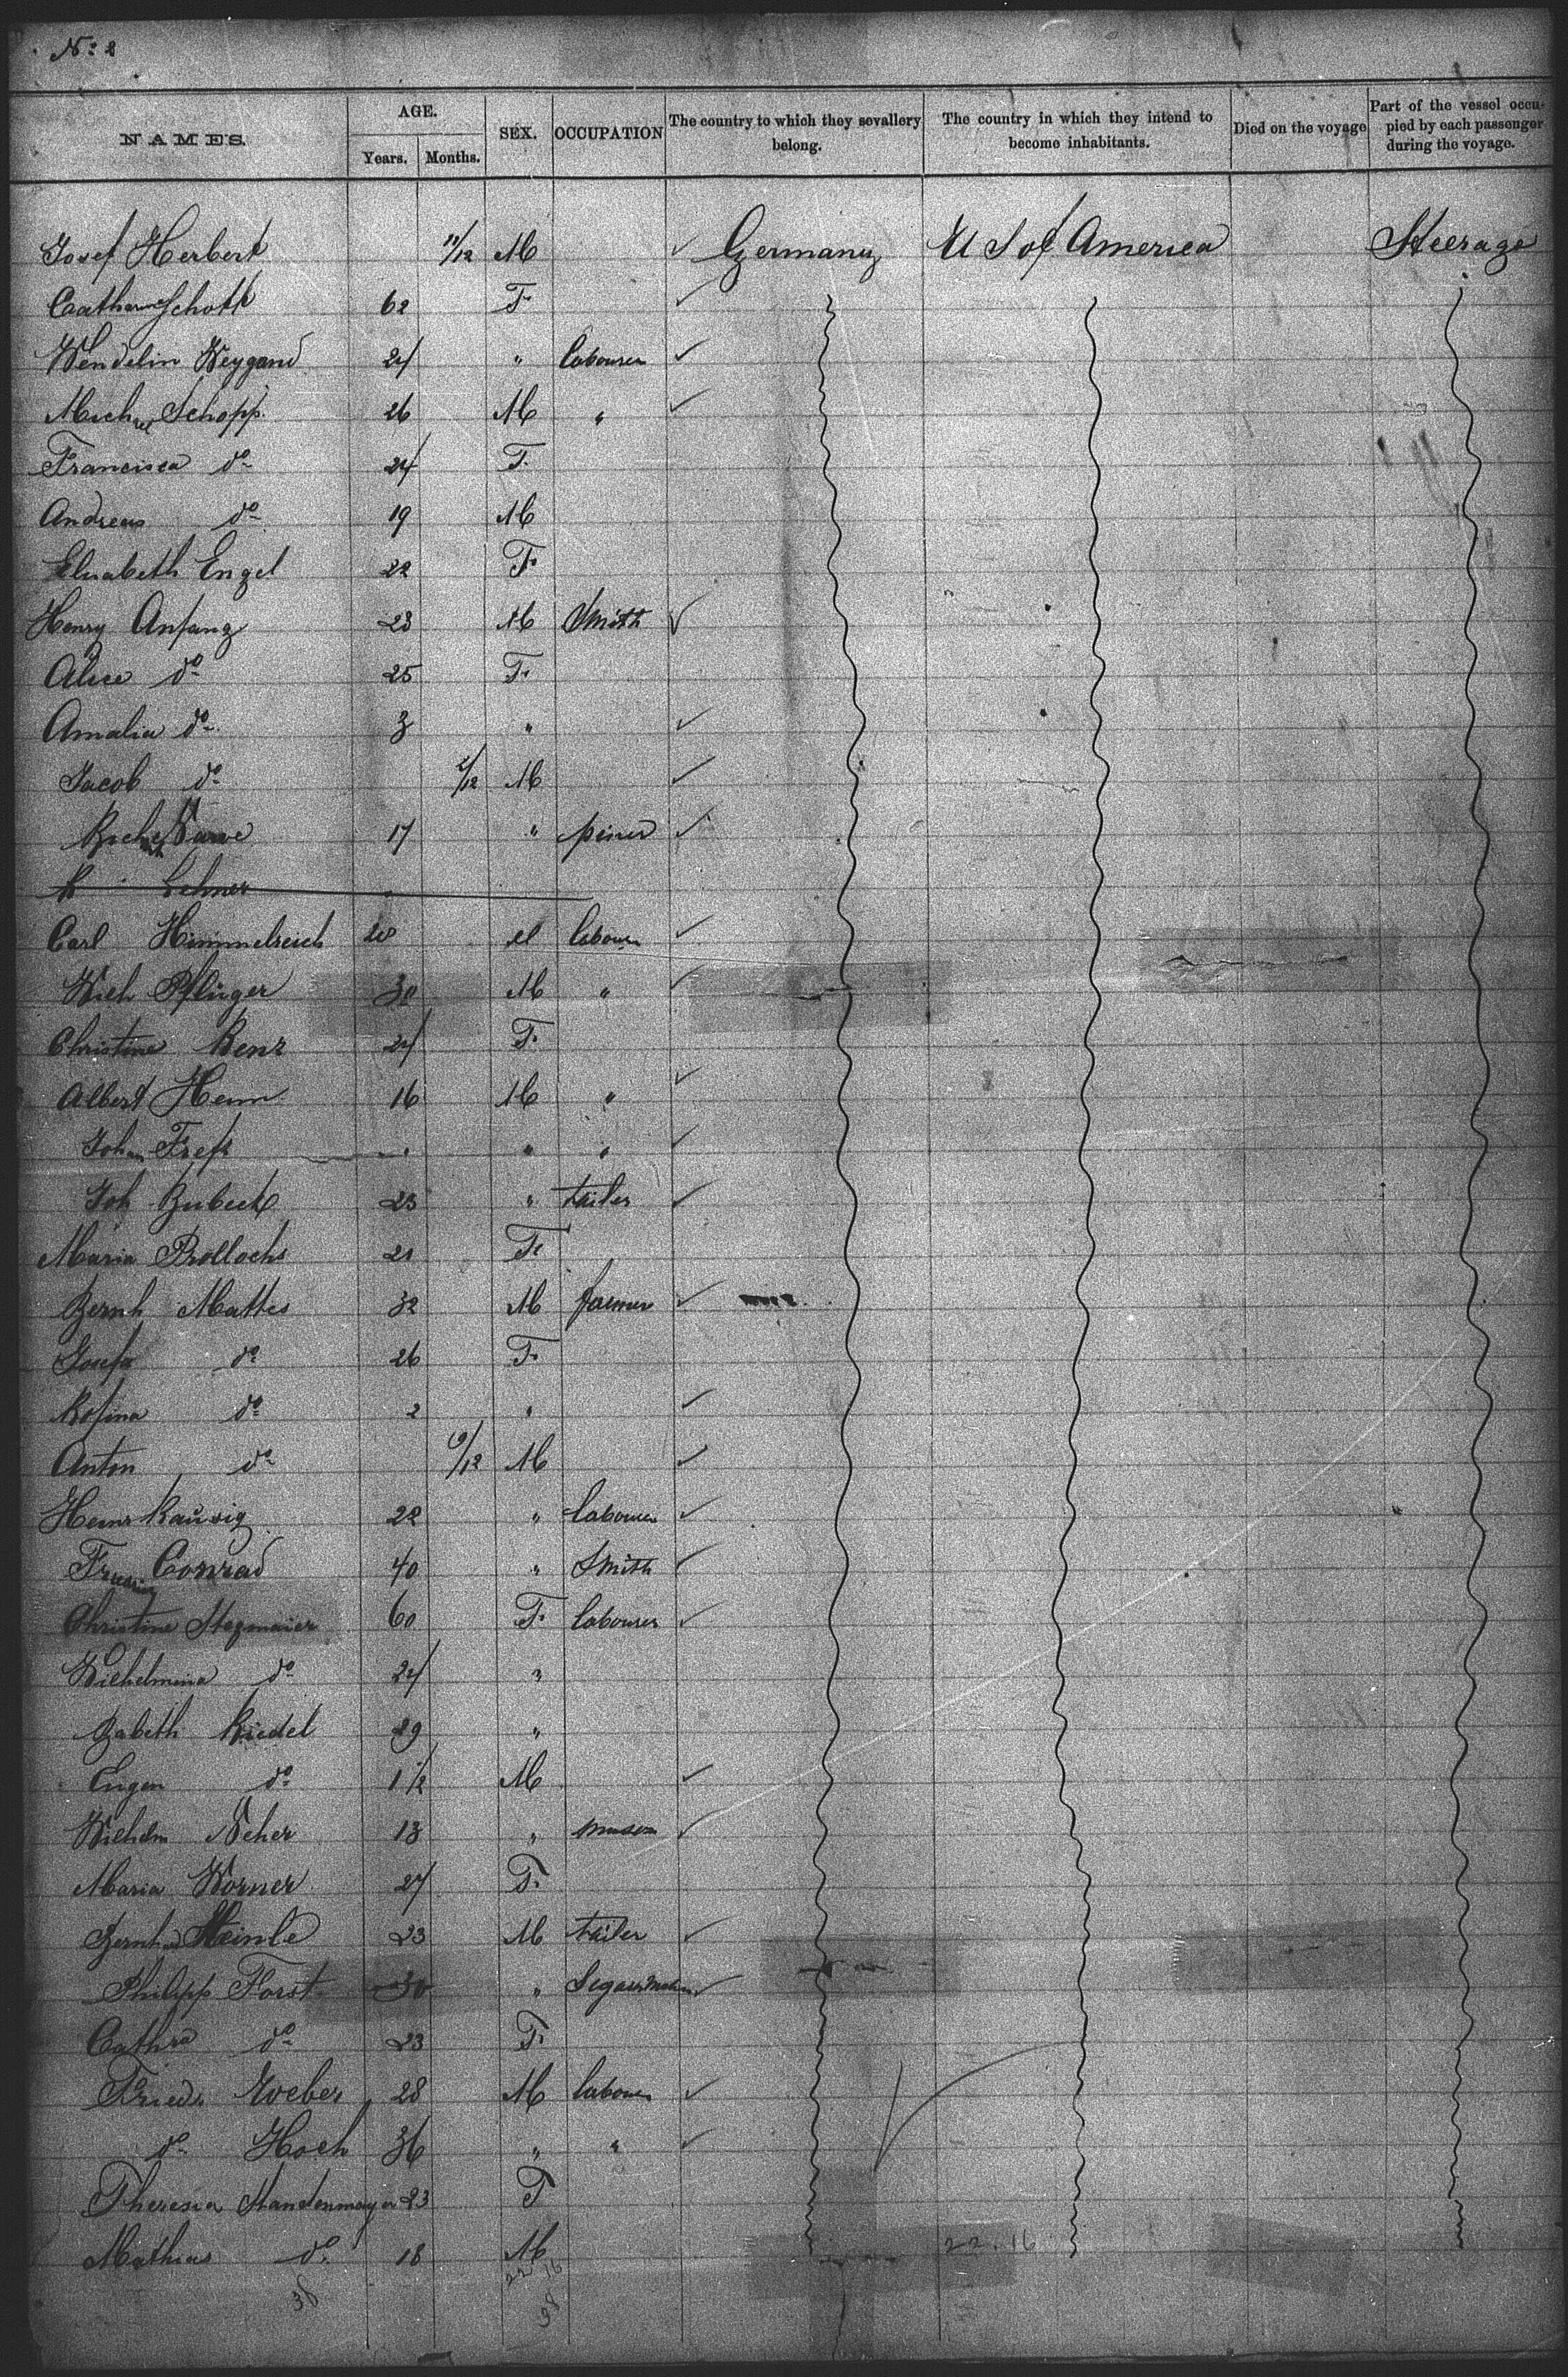 No: 2
NAMES. AGE. Years. Months. SEX. OCCUPATION The country to which they severallery belong. The country in which they intend to become inhabitants. Died on the voyage Part of the vessel occupied by each passenger during the voyage.
Josef Herbert 11/12 M Germany U S of America Steerage
Catharine Schott 62 F
Wendelin Weygand 24 " labourer
Michael Schopp 26 M "
Francisca do 24 F.
Andreas do 19 M
Elisabeth Engel 22 F.
Henry Anfang 23 M Smith
Alice do 25 F.
Amalia do 3 "
Jacob do 2/12 M
17 "
Lehner
Carl Himmelreich 20 M labourer
Wich Pflüger 30 M "
Christine Benz 24 F.
Albert Henn 16 M "
Johan " "
Joh Bubeck 23 " tailer
Maria Prollochs 21 F.
Bernh Mattes 32 M farmer
Josefa do 26 F.
Rosina do 2 "
Anton do 9/12 M
22 " labourer
Conrad 40 " Smith
Christine Stegmaier 60 F. labourer
Wilhelmina do 24 "
Babeth Riedel 29 "
Eugen do 1 1/2 M
Wilhelm Neher 13 " mason
Maria Worner 27 F.
Bernhard Steinle 23 M tailer
Philipp Forst 30 "
Cathra do 23 F.
Friedr Weber 28 M labourer
do Hoch 36 " "
Theresia Standenmayer 23 F
Mathias do 18 M
22 16 22.16
38 38